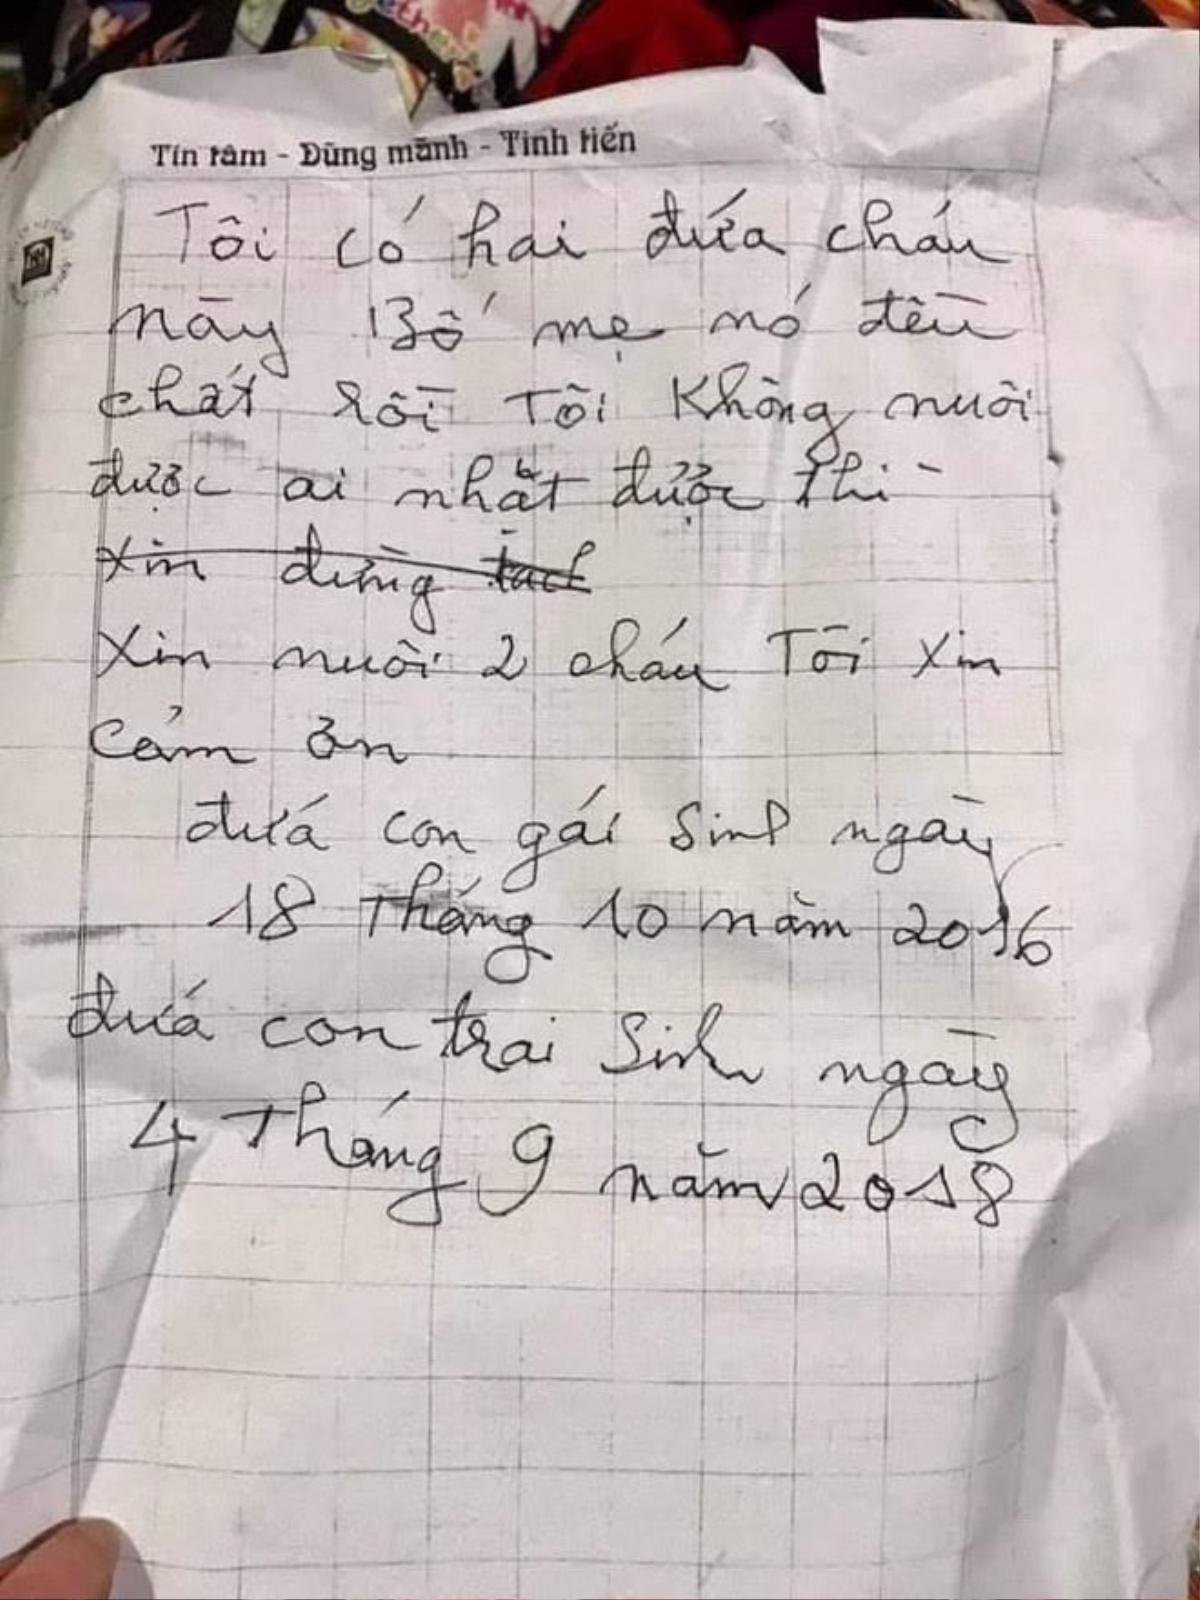 Tín tâm - Dũng mãnh - Tinh tiến
Tôi có hai đứa cháu
này Bố mẹ nó đều
chất rồi Tôi Không nuôi
được ai nhặt được thì
xin đừng tach
Xin nuôi 2 cháu Tôi xin
cảm ơn
đứá con gái sinh ngày
18 Tháng 10 năm 2016
đứá con trai sinh ngày
4 Tháng 9 năm 2018